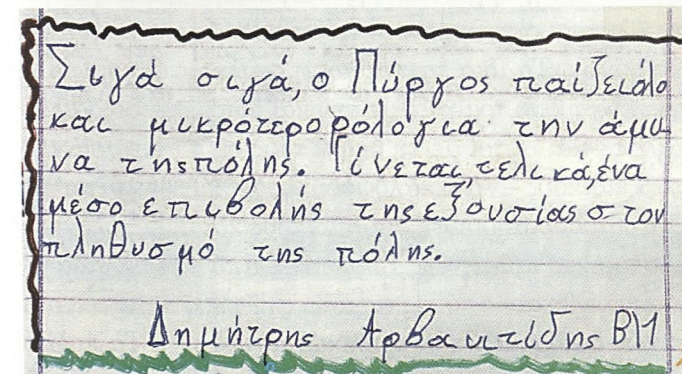 Σιγά σιγά, ο Πύργος παίζει όλο
και μικρότερο ρόλο για την άμυ-
να της πόλης. Γίνεται, τελικά, ένα
μέσο επιβολής της εξουσίας στον
πληθυσμό της πόλης.
Δημήτρης Αρβανιτίδης Β\1